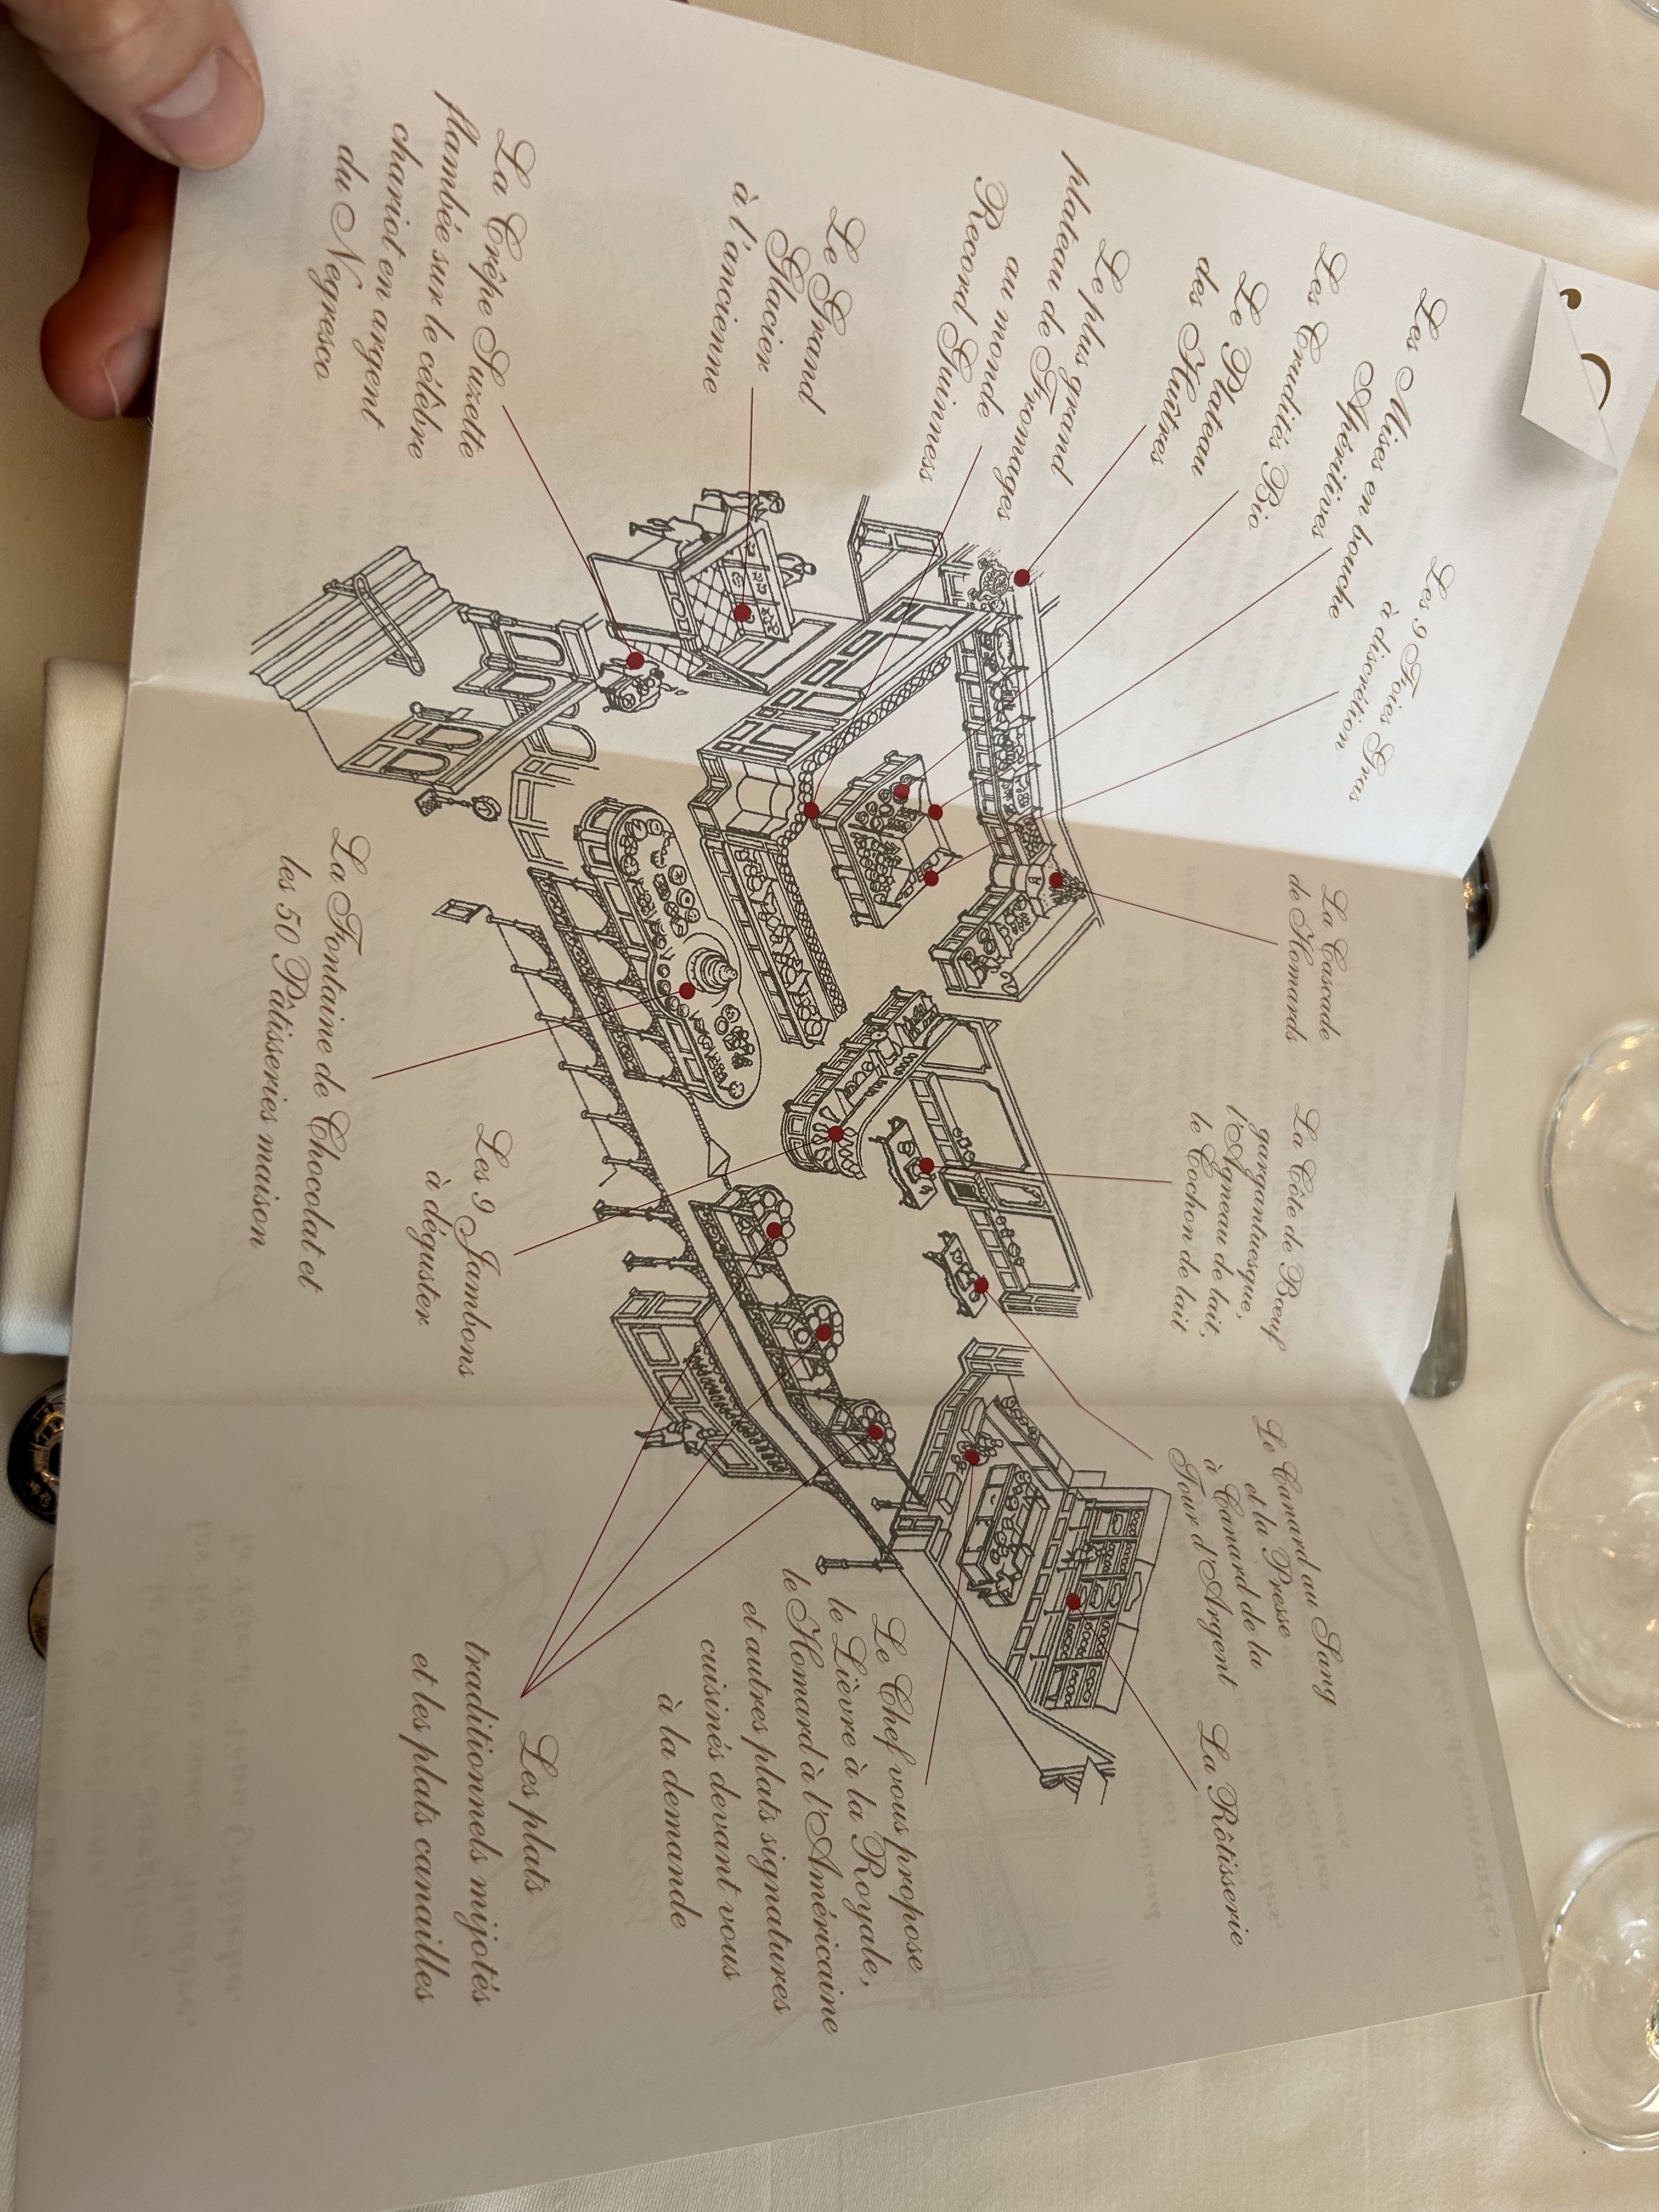 Les 9 Foies Gras
à discrétion
Les Mises en bouche
Apéritives
Les Crudités Bio
Le Plateau
des Huîtres
Le plus grand
plateau de Fromages
au monde
Record Guinness
Le Grand
Glacier
à l'ancienne
La Crêpe Suzette
flambée sur le célèbre
chariot en argent
du Negresco
La Cascade
de Homards
La Côte de Bœuf
gargantuesque,
l'Agneau de lait,
le Cochon de lait
Le Canard au Sang
et la Presse
à Canard de la
Tour d'Argent
La Rôtisserie
Le Chef vous propose
le Lièvre à la Royale,
le Homard à l'Américaine
et autres plats signatures
cuisinés devant vous
à la demande
Les plats
traditionnels mijotés
et les plats canailles
Les 9 Jambons
à déguster
La Fontaine de Chocolat et
les 50 Pâtisseries maison